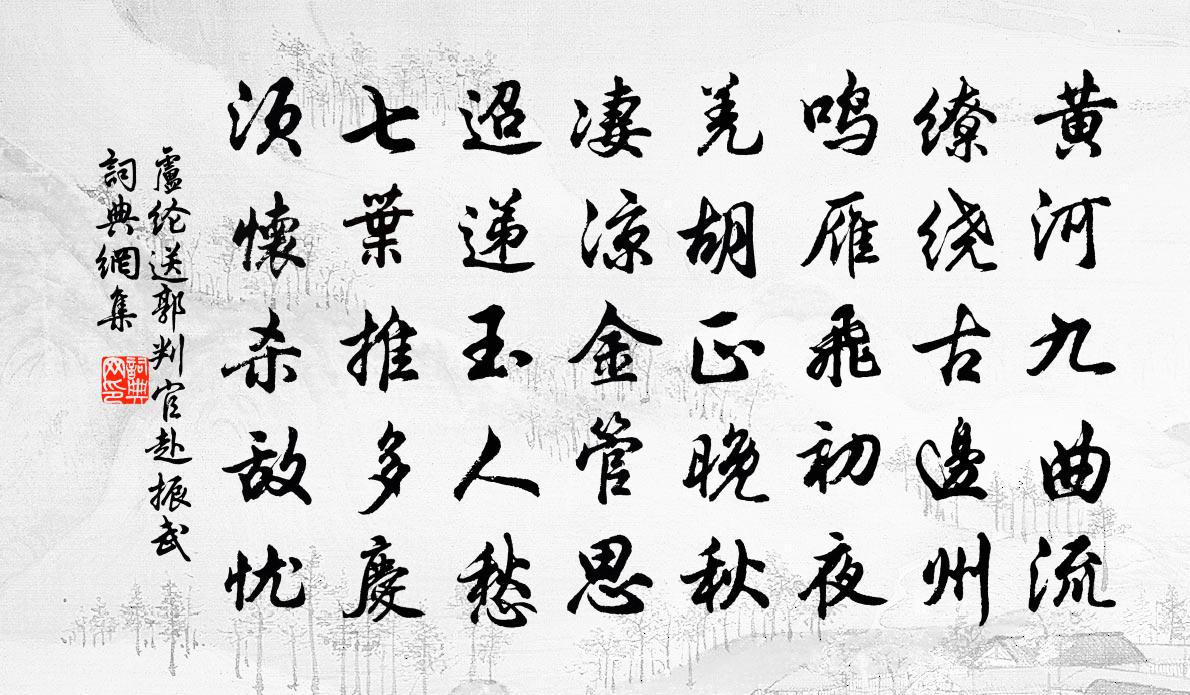 黄河九曲流
缭绕古邊州
鸣雁飛初夜
羌胡正晚秋
凄涼金管思
迢递玉人愁
七葉推多慶
须懷杀敌忧
盧纶送郭判官赴振武
詞典網集
詞典网印